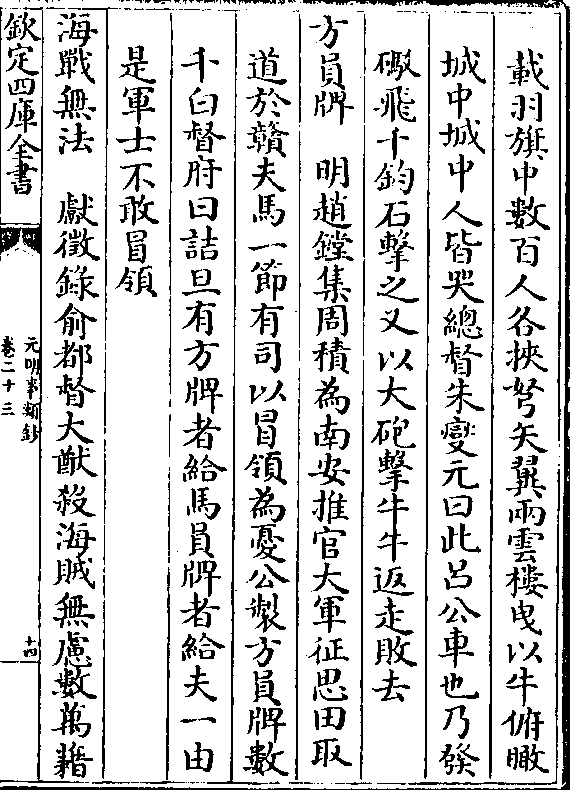 載羽旗中數百人各挾弩矢翼兩雲樓曳以牛俯瞰
城中城中人皆哭總督朱燮元曰此吕公車也乃發
礮飛千鈞石擊之又以大砲擊牛牛返走敗去
方員牌　明趙鏜集周積為南安推官大軍征思田取
道於贛夫馬一節有司以冒領為憂公製方員牌數
千白督府曰詰旦有方牌者給馬員牌者給夫一由
是軍士不敢冒領
海戰無法　獻徵錄俞都督大猷殺海賊無慮數萬藉
欽定四庫全書
元明事類鈔
卷二十三
十四